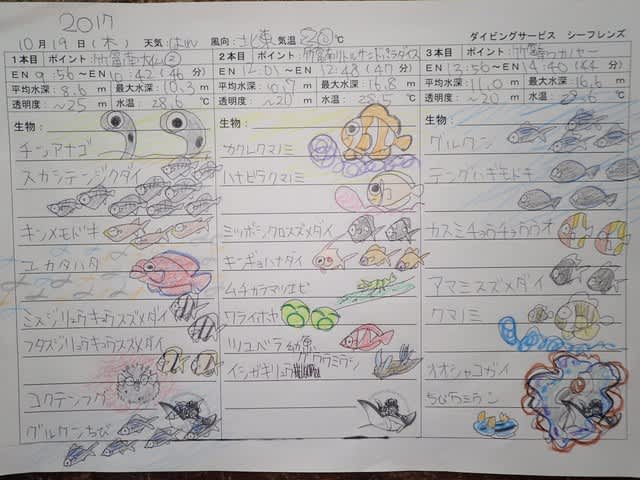 2017
10月19日(木) 天気: はれ 風向: 北東 気温 28℃ ダイビングサービス シーフレンズ
1本目 ポイント: 竹富南
EN 9:56～EN 10:42 (46分)
平均水深: 8.6m 最大水深: 10.3m
透明度: ～25m 水温: 28.6℃
生物:
チンアナゴ
スカシテンジクダイ
キンメモドキ
ユカタハタ
ミスジリュウキュウスズメダイ
フタスジリュウキュウスズメダイ
コクテンフグ
グルクンちび
2本目 ポイント: 竹富南リトルサンドパラダイス
EN 12:01～EN 12:48 (47分)
平均水深: 10.7m 最大水深: 16.8m
透明度: ～20m 水温: 28.5℃
生物:
カクレクマノミ
ハナビラクマノミ
ミツボシクロスズメダイ
キンギョハナダイ
ムチカラマツエビ
ワライボヤ
ツユベラ幼魚
イシガキリュウグウウミウシ
3本目 ポイント: 竹富
EN 13:56～EN 14:40 (44分)
平均水深: 11.0m 最大水深: 16.6m
透明度: ～20m 水温: 28.6℃
生物:
グルクン
テングハギモドキ
カスミチョウチョウウオ
アマミスズメダイ
クマノミ
オオシャコガイ
ちびウミウシ